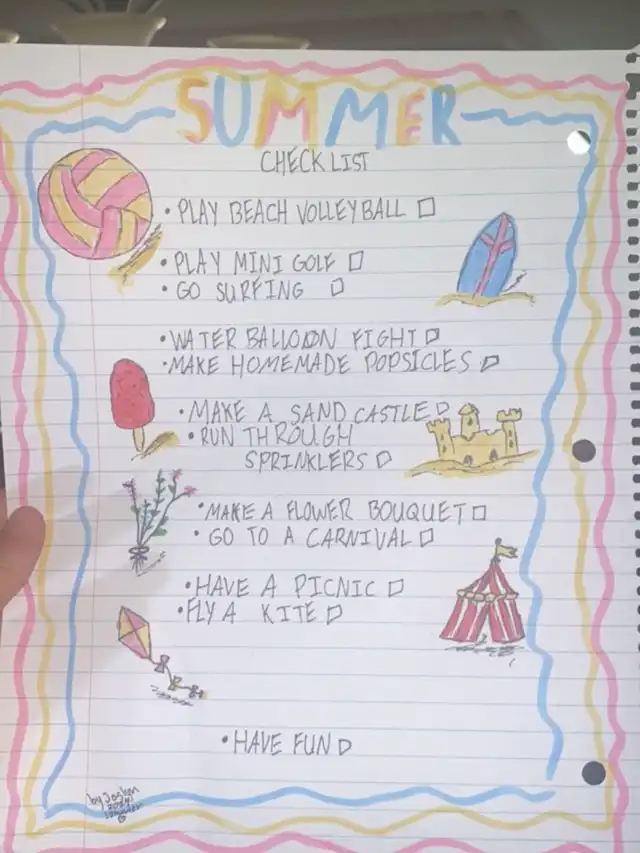 SUMMER
CHECK LIST
• PLAY BEACH VOLLEYBALL
• PLAY MINI GOLF
• GO SURFING
• WATER BALLOON FIGHT
• MAKE HOMEMADE POPSICLES
• MAKE A SAND CASTLE
• RUN THROUGH
SPRINKLERS
• MAKE A FLOWER BOUQUET
• GO TO A CARNIVAL
• HAVE A PICNIC
• FLY A KITE
• HAVE FUN
by